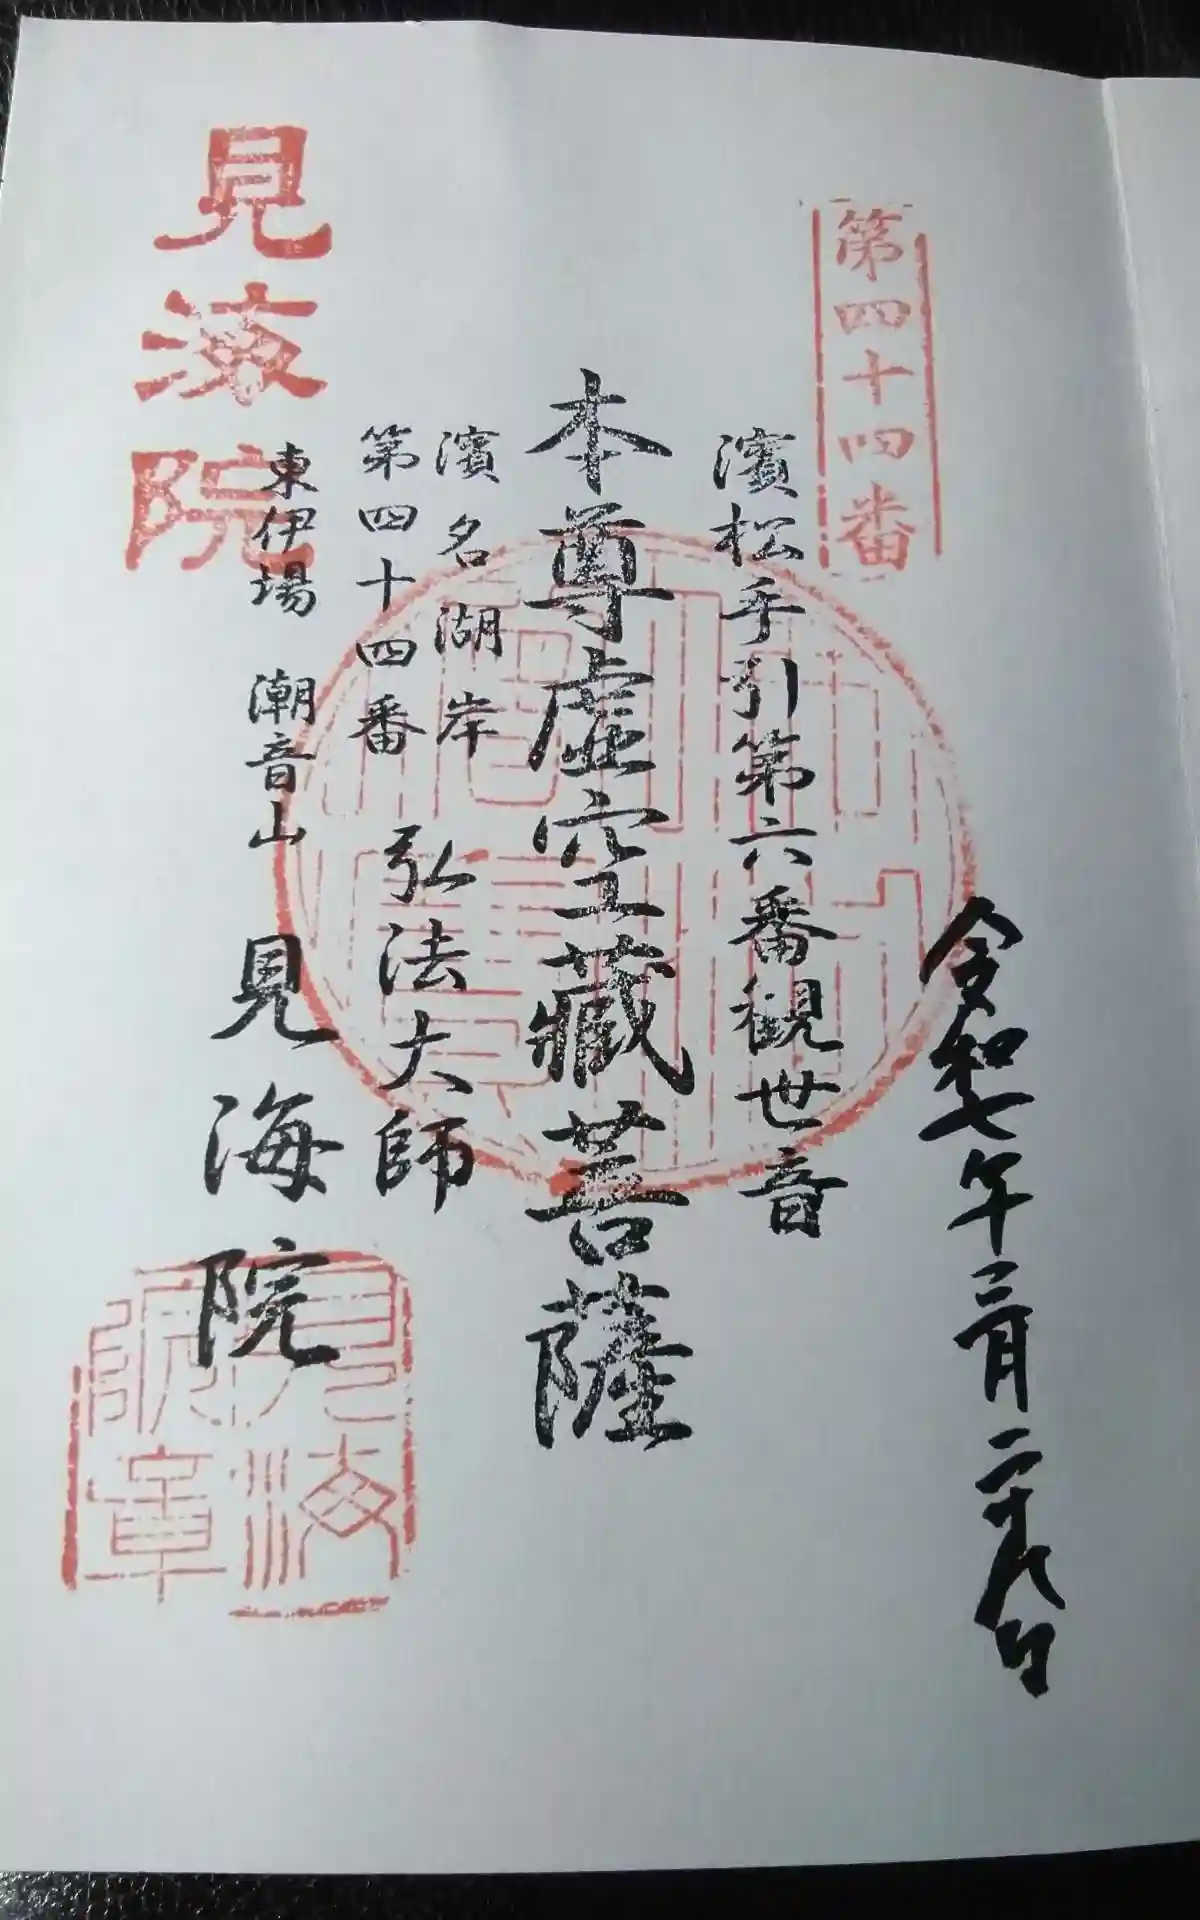 第四十四番
令和七年三月二十九日
濱松手引第六番観世音
本尊虚空藏菩薩
濱名湖岸
第四十四番 弘法大師
東伊場 潮音山 見海院
見海院
見海
院章